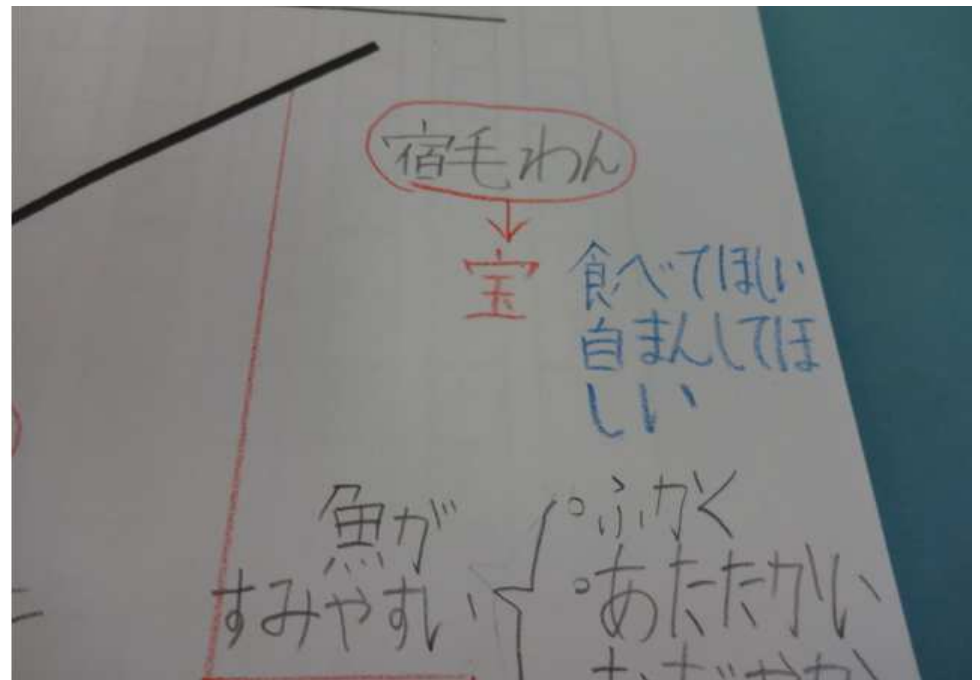 宿毛わん
宝
食べてほしい
自まんしてほ
しい
魚が
すみやすい
・ふかく
・あたたかい